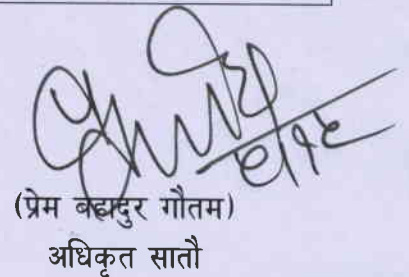 ९।१६
(प्रेम बहादुर गौतम)
अधिकृत सातौ